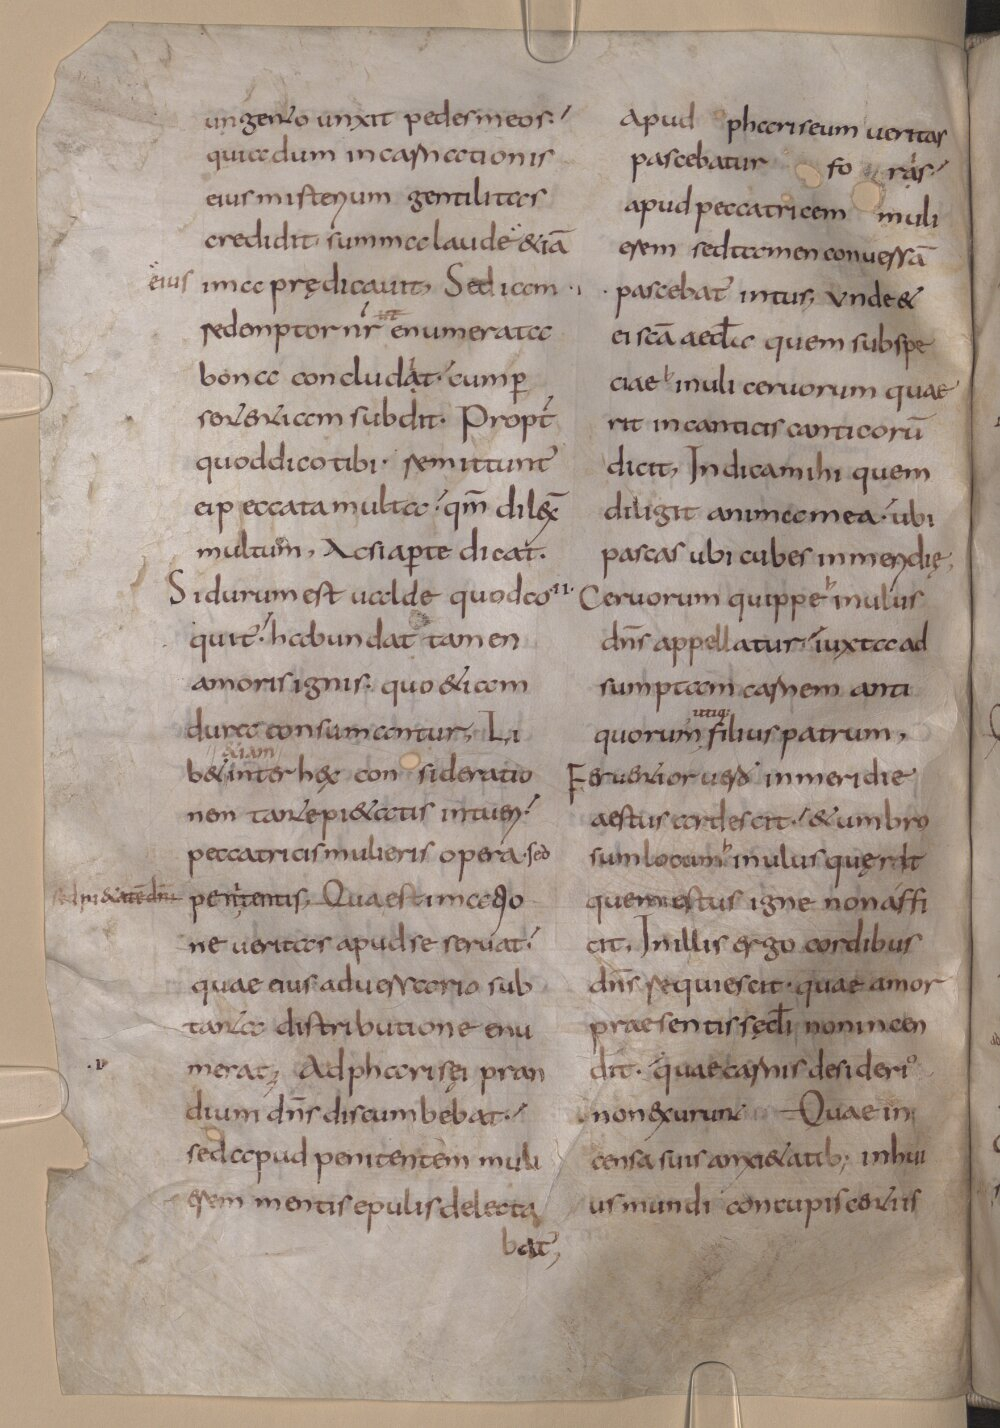 ungento unxit pedes meos.
quia dum incarnationis
eius misterium gentilitas
credidit summa laude & iā
eius
ima prędicavit, Sed iam
redemptor nr̄ enumerata
ut
bona concludat. cum ꝑ
sententiam subdit. Propt̄
quod dico tibi. remittunt̄
ei peccata multa. qm̄ dilex̄
multum, Ac si aꝑte dicat.
Si durum est valde quod co
quit̄. habundat tamen
amoris ignis. quo etiam
dura consumantur, Li
&iam
b& inter h&c con sideratio
nem tante pi&atis intueri
peccatricis mulieris opera. sed
penitentis, Quaestimatio
ne veritas apud se servat.
quae eius adversario sub
tanta distributione enu
merat, Ad pharisei pran
dium dn̄s discumbebat.
sed apud penitentem muli
erem mentis epulis delecta
bat̄,
apud phariseum veritas
pascebatur fo ras
apud peccatricem muli
erem sed tamen conuersā
pascebat̄ intus, Unde &
ei scā aeccl̄a quem sub spe
ciae hinuli cervorum quae
rit in canticis canticorū
dicit, Indica mihi quem
diligit anima mea. ubi
pascas ubi cubes in meridię,
Cervorum quippe hinulus
dn̄s appellatur. iuxta ad
sumptam carnem anti
utiq;
quorum filius patrum,
Ferventior vero in meridie
aestus ardescit. & umbro
sum locum hinulus quęrit
quem estus igne non affi
cit, In illis ergo cordibus
dn̄s requiescit. quae amor
praesentis sęcl̄i non incen
dit. quae carnis desideriō
non exurunt Quae in
censa suis anxi&atib; in hui
us mundi concupiscentiis